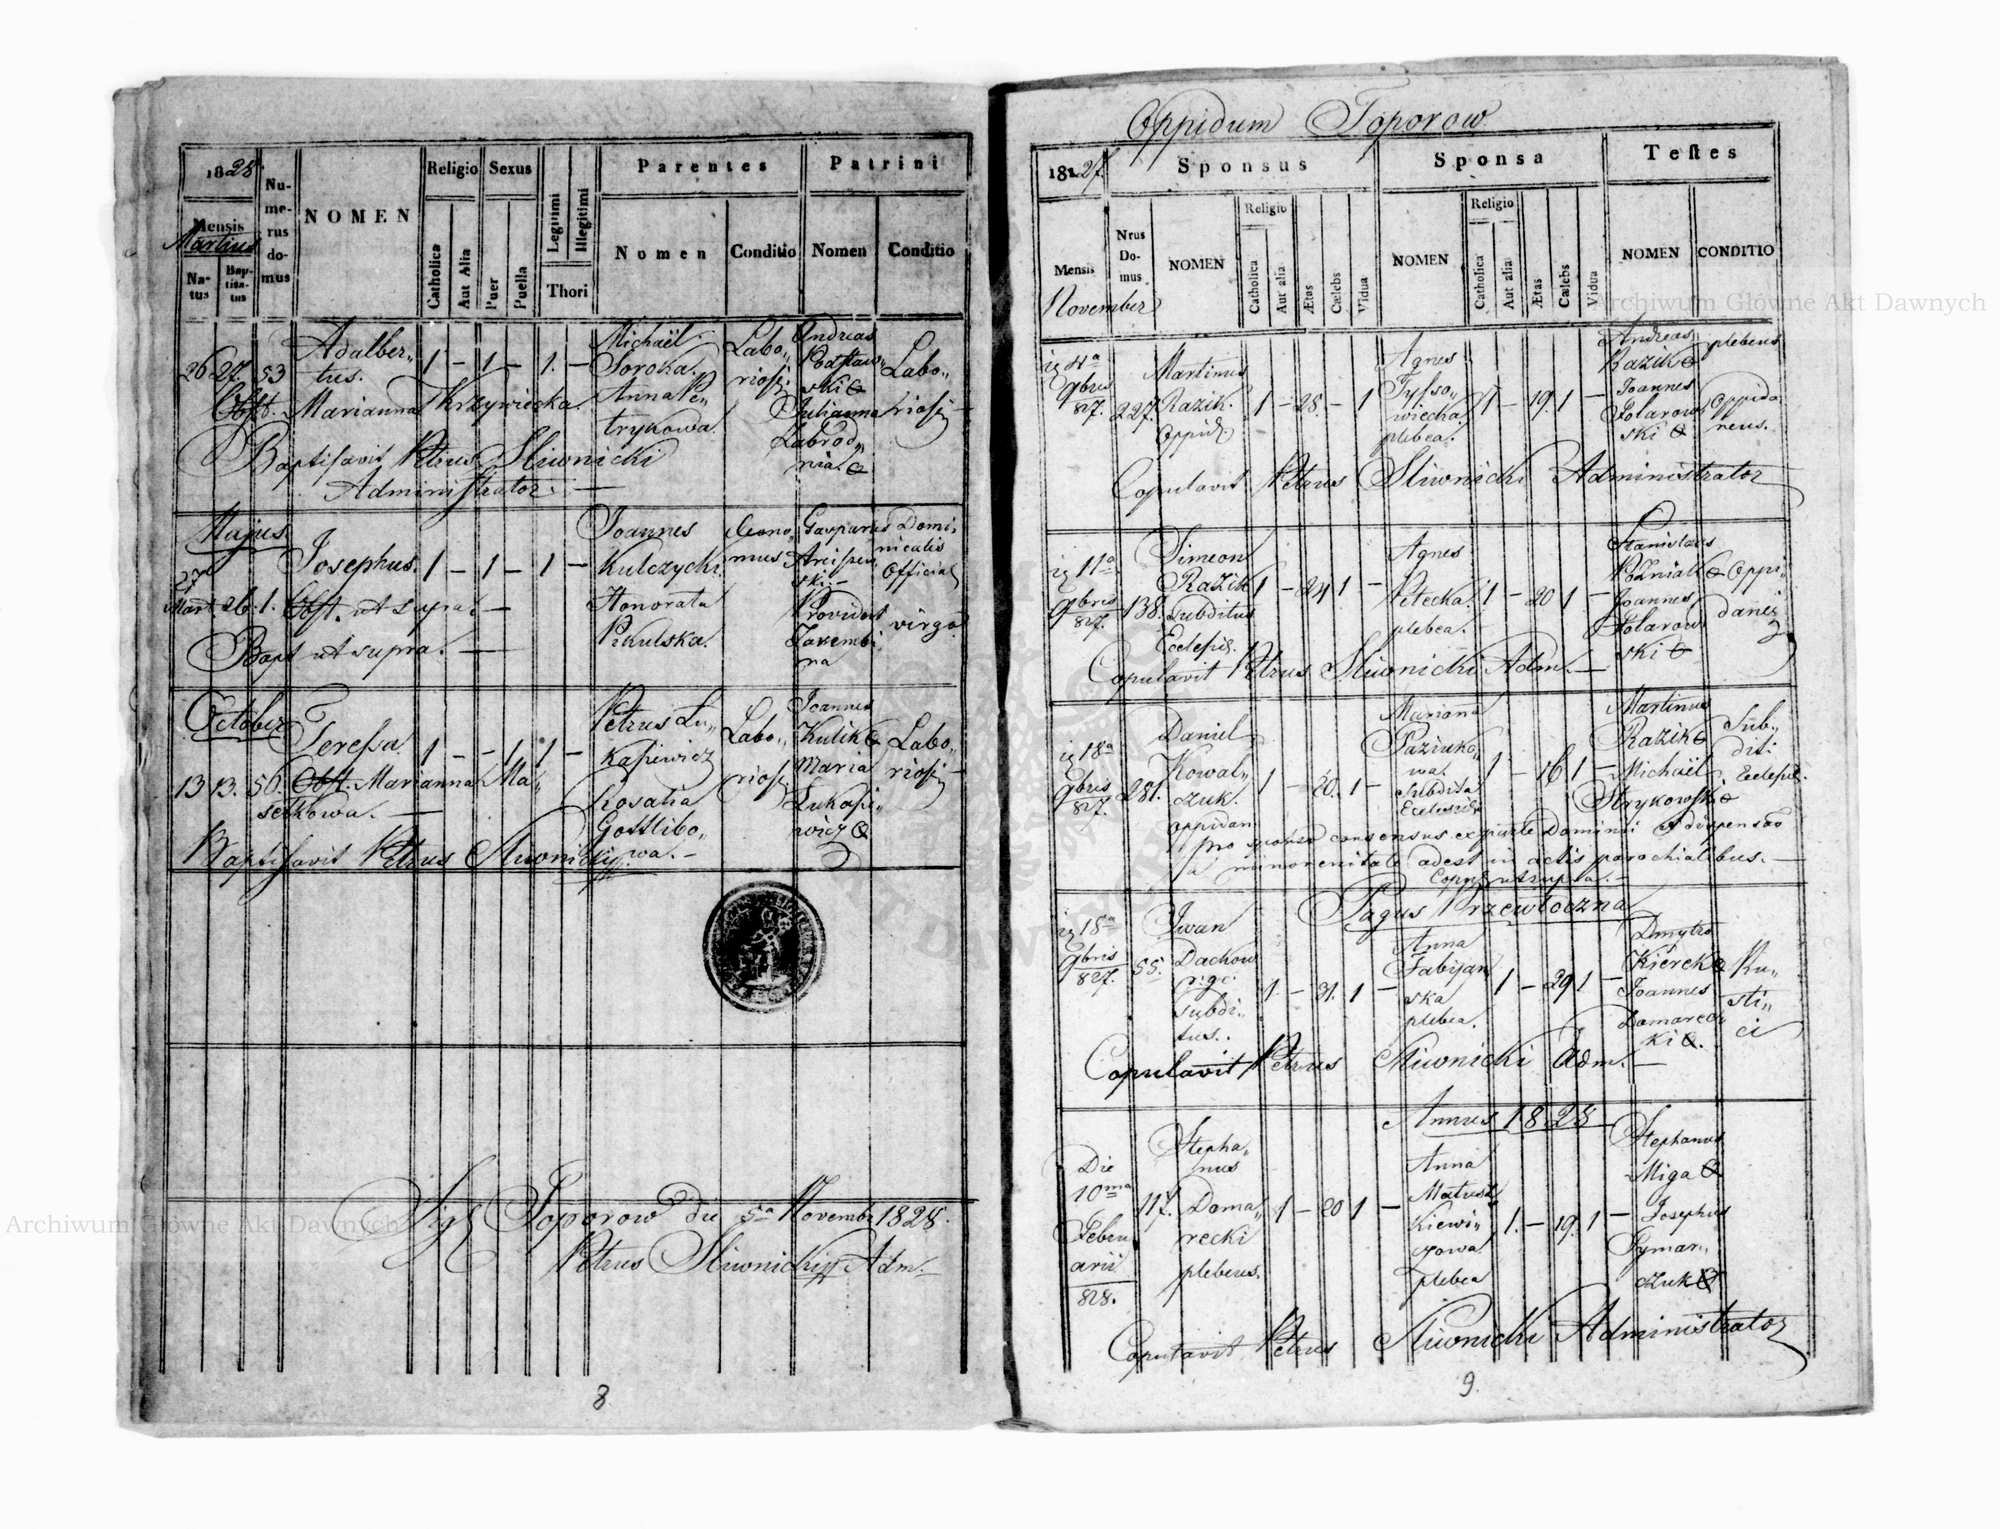 1828.
Mensis
Martius
Natus
Baptisatus
Numerus domus
NOMEN
Religio
Catholica
Aut Alia
Sexus
Puer
Puella
Legitimi
Illegitimi
Thori
Parentes
Nomen
Conditio
Patrini
Nomen
Conditio
26 27. 53
Adalber„
tus.
1 – 1 – 1. –
Michaël
Soroka.
Anna Pe„
trykowa.
Labo„
riosi
Andreas
ski &
Julianna
Labrod„
nia &
Labo„
riosi –
Obst. Marianna Krzywiecka.
Baptisavit Petrus Sliwnicki
Administrator. —
Majus
Mart. 26. 1.
Josephus.
1 – 1 – 1 –
Joannes
Kulczycki
Honorata
Pikulska.
Gasparus
ski –
na
Domi„
nicalis
Official
virgo
Obst. ut supra. —
Bapt ut supra. —
October
13 13. 56.
Teressa.
1 – – 1 1 –
Petrus Lu„
kasiewicz
Rosalia
Gottlibo„
wa. –
Labo„
riosi
Joannes
Kulik &
Maria
Lukasi„
wicz &
Labo„
riosi –
Obst. Marianna Ma„
sełkowa. —
Baptisavit Petrus Sliwnicki
Sig. Toporow die 5ta Novembr 1828.
Petrus Sliwnicki Adm.
8
Oppidum Toporow
1827.
Sponsus
Sponsa
Testes
Mensis
November
Nrus Domus
NOMEN
Religio
Catholica
Aut alia
Ætas
Cælebs
Vidua
NOMEN
Religio
Catholica
Aut alia
Ætas
Cælebs
Vidua
NOMEN
CONDITIO
4a
9bris
827.
227.
Martinus
Razik.
Oppid.
1 – 28. – 1
Agnes
Tysso„
wiecka
plebea.
1 – 19. 1 –
Andreas
Razik &
Joannes
Polarow
ski &
plebeus
Oppida
neus.
Copulavit Petrus Sliwnicki Administrator
11a
9bris
827.
138.
Simeon
Razik
subditus
Eclesi.
1 – 24 1 –
Agnes
Pitecka.
plebea.
1 – 20 1 –
Stanislaus
Poźniak &
Joannes
Polarow
ski &
Oppi„
danei
Copulavit Petrus Sliwnicki Adm. —
18a
9bris
827.
281.
Daniel
Kowal„
czuk.
oppidan
1 – 20. 1 –
Marianna
Paziuko„
wa.
subdita
1 – 16 1 –
Martinus
Razik &
Michaël
Strykowski &
Sub„
diti
Eclesi.
pro sponso consensus ex parte Dominii et dispensao
a minorenitate adest in actis parochialibus. —
Copul. ut supra. –
Pagus Przewłoczna
18a
9bris
827.
55.
Iwan
Dachow
r: gc:
subdi„
tus.
1. – 31. 1 –
Anna
Fabijan
ska
plebea.
1 – 29 1 –
Dmytro
Kierek &
Joannes
Domarec
ki &.
Ru„
sti„
ci
Copulavit Petrus Sliwnicki Adm. —
Annus 1828
Die
10ma
Febru
arii
828.
117.
Stepha„
nus
Doma„
recki
plebeus.
1 – 20 1 –
Anna
Matusz
kiewi„
czowa
plebea
1. – 19. 1 –
Stephanus
Miga &
Josephus
Symar„
czuk &
Copulavit Petrus Sliwnicki Administrator
9.
Archiwum Główne Akt Dawnych
Archiwum Główne Akt Dawnych